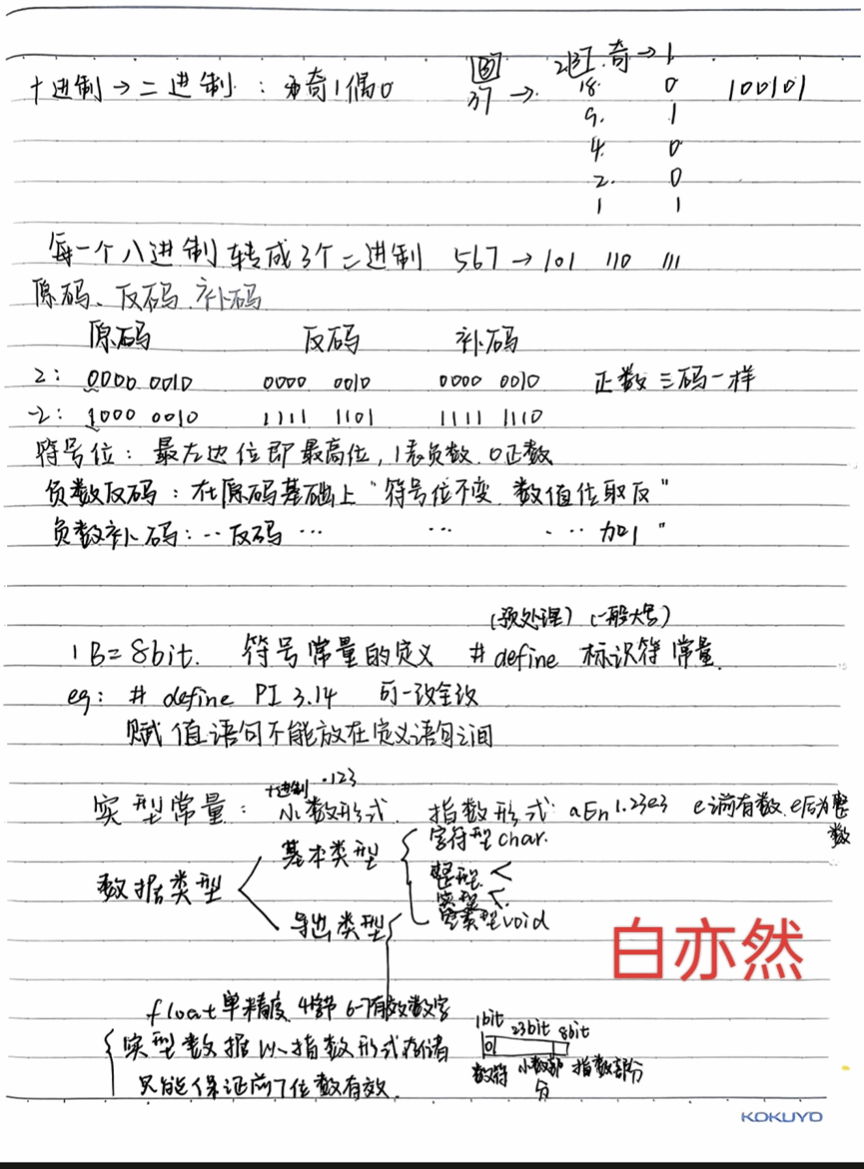 十进制→二进制：奇1偶0
37 →
2 37 奇→1
18 0
9. 1
4. 0
2. 0
1 1
100101
每一个八进制转成3个二进制 567→101 110 111
原码、反码、补码
原码 反码 补码
2： 0000 0010 0000 0010 0000 0010 正数三码一样
-2： 1000 0010 1111 1101 1111 1110
符号位：最左边位即最高位，1表负数.0正数
负数反码：在原码基础上“符号位不变 数值位取反”
负数补码：‥反码 … … ‥加1”
(预处理) (一般大写)
1B=8bit. 符号常量的定义 # define 标识符 常量.
eg： # define PI 3.14 可一改全改
赋值语句不能放在定义语句之间
实型常量：
十进制 .123
小数形式. 指数形式：aEn 1.23e3 e前有数.e后为整数
数据类型
基本类型
字符型char.
整型.<
实型<.
空类型void
导出类型
float单精度 4字节 6-7有效数字
实型数据以指数形式存储
只能保证前7位数有效.
1bit 23bit 8bit
0
数符 小数部分 指数部分
白亦然
KOKUYO